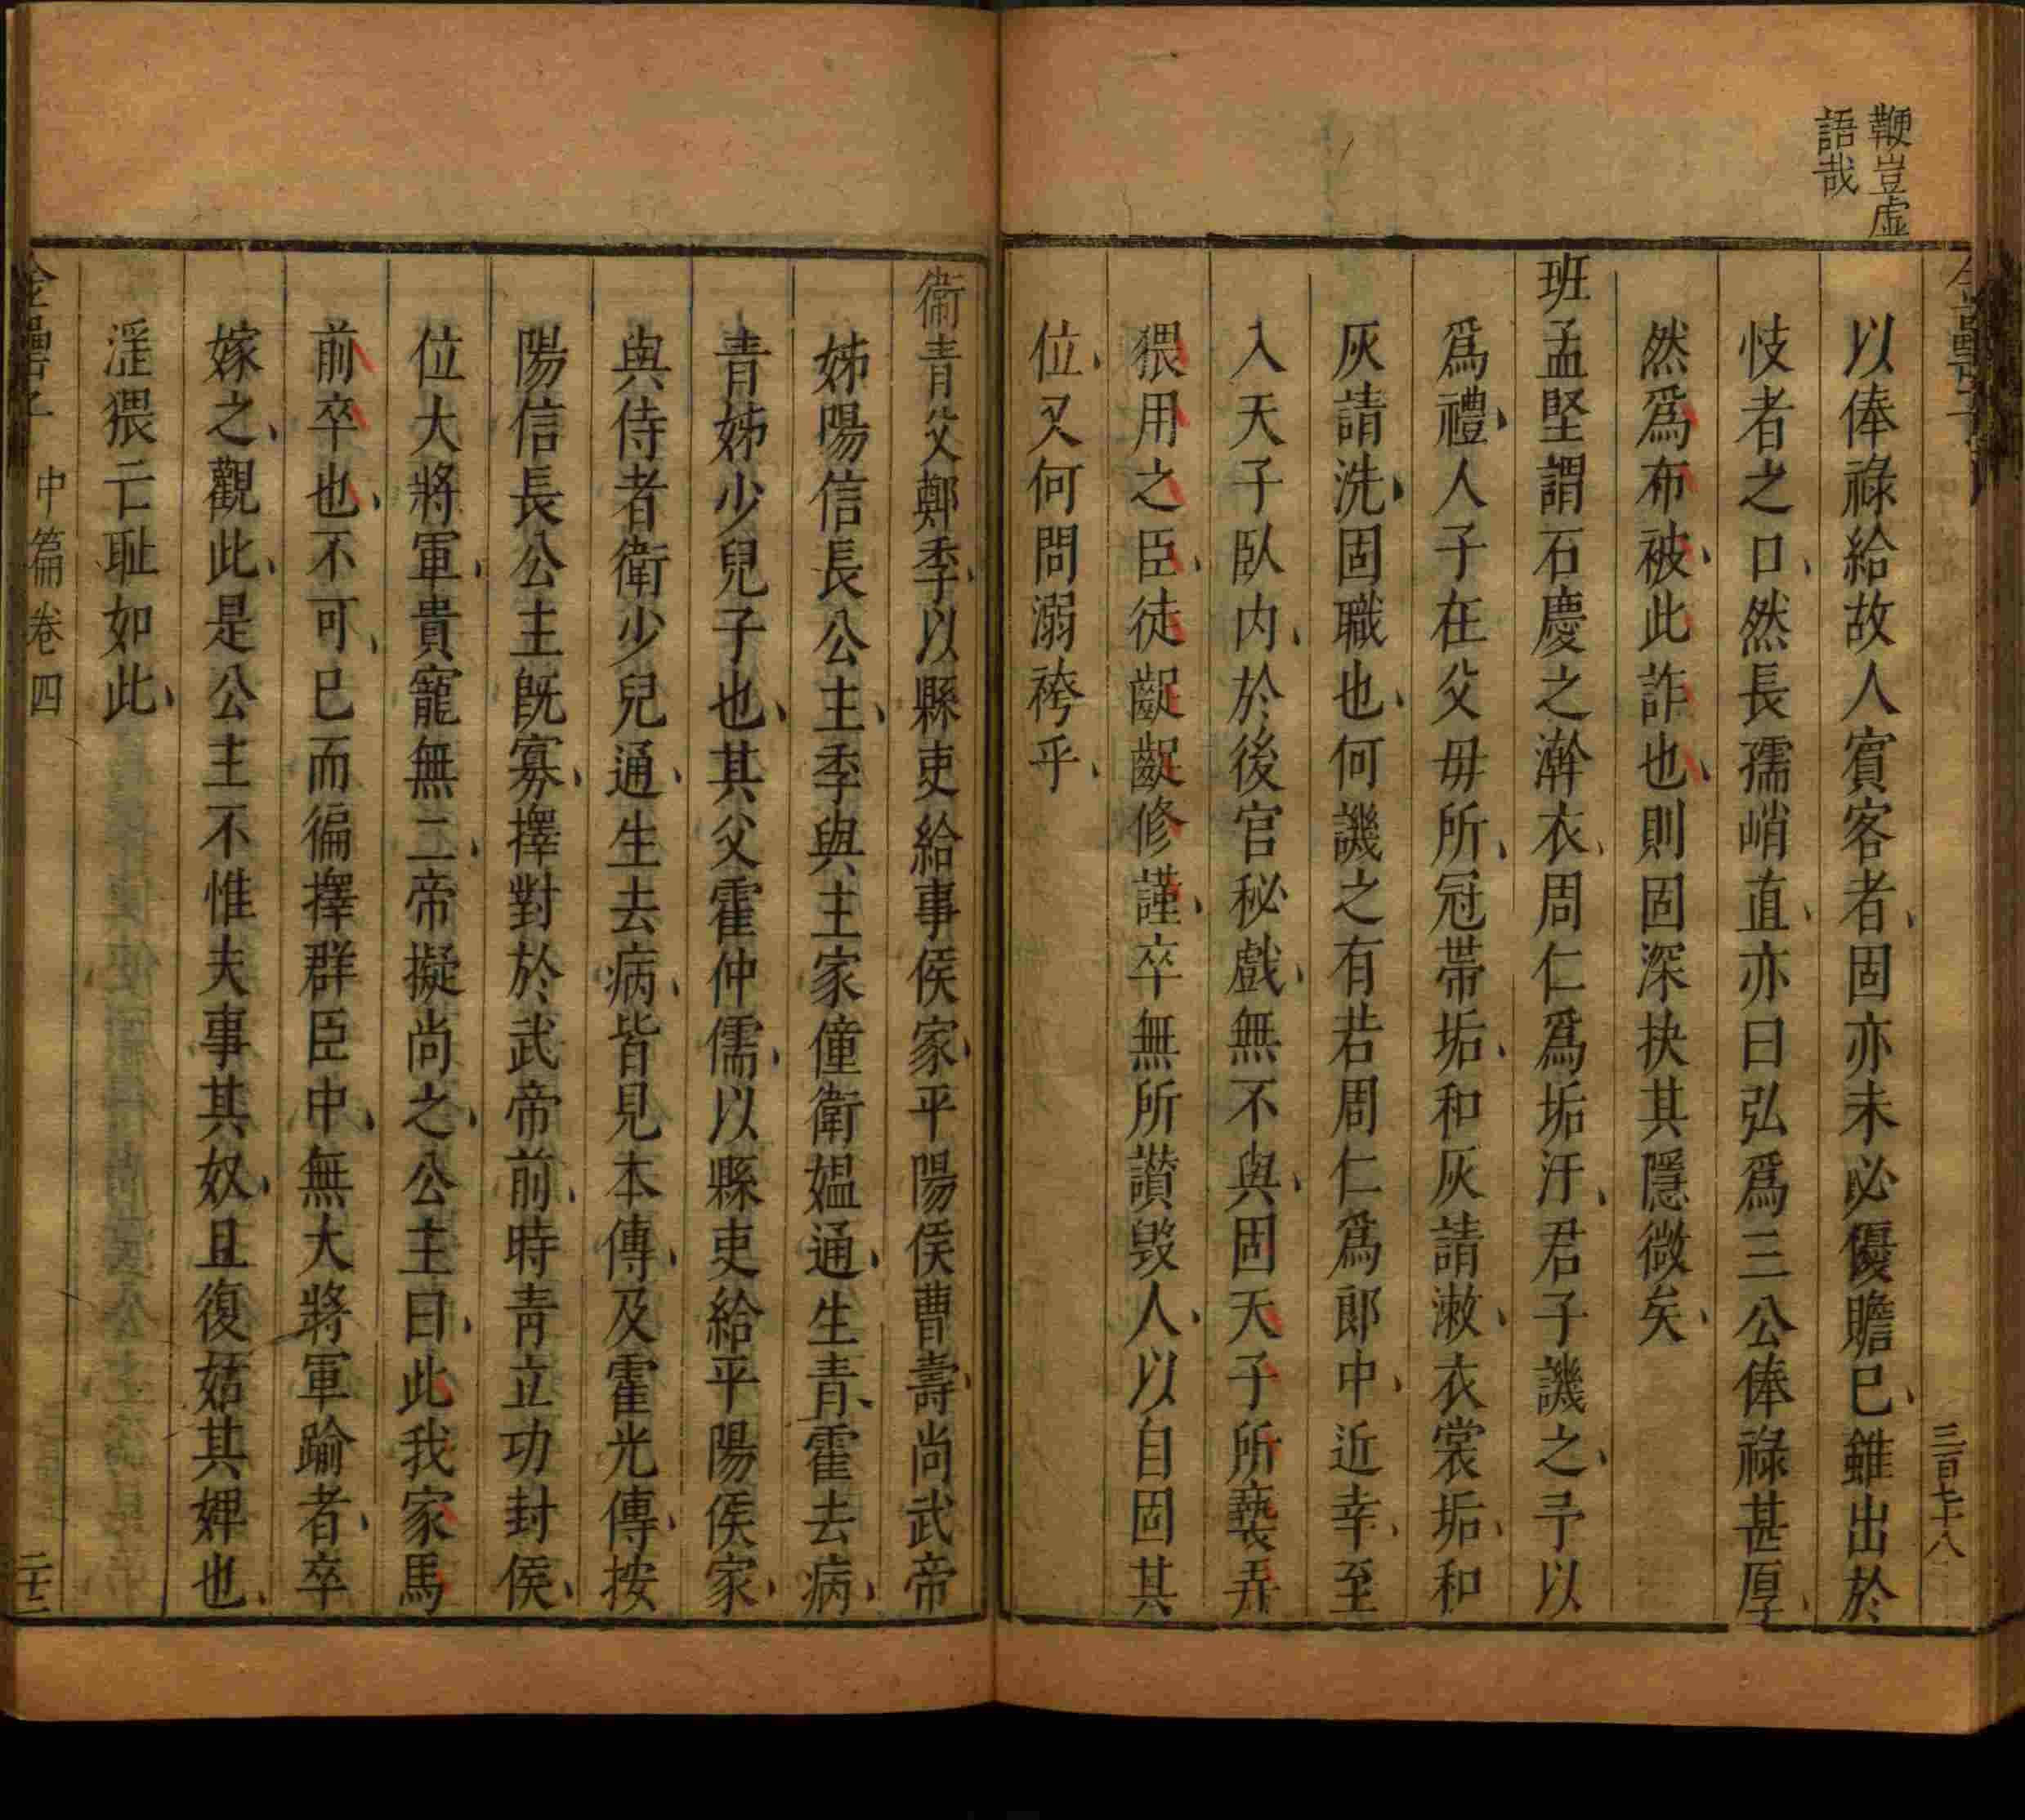 鞭豈虛
語哉
三百七十八
以俸祿給故人賓客者、固亦未必優贍已、雖出於
忮者之口、然長孺峭直、亦曰弘爲三公俸祿甚厚、
然爲布被、此詐也、則固深抉其隱微矣、
班孟堅謂石慶之澣衣、周仁爲垢汙、君子譏之、予以
爲禮、人子在父毋所、冠帶垢、和灰請漱、衣裳垢、和
灰請洗、固職也、何譏之有若周仁爲郎中、近幸、至
入天子臥内、於後宮秘戲、無不與、固天子所褻弄
猥用之臣、徒齪齪修謹、卒無所讃毁人、以自固其
位、又何問溺袴乎、
衞青父鄭季、以縣吏給事侯家、平陽侯曹壽、尚武帝
姊陽信長公主、季與主家僮衛媼通、生青、霍去病、
青姊少兒子也、其父霍仲儒、以縣吏給平陽侯家、
與侍者衛少兒通、生去病、皆見本傳、及霍光傳、按
陽信長公主既寡、擇對於武帝前、時青立功封侯、
位大將軍、貴寵無二、帝擬尚之、公主曰、此我家馬
前卒也、不可、已而徧擇群臣中、無大將軍踰者、卒
嫁之、觀此、是公主不惟夫事其奴、且復姑其婢也、
淫猥亡耻如此、
金罍子 中篇卷四 二十二